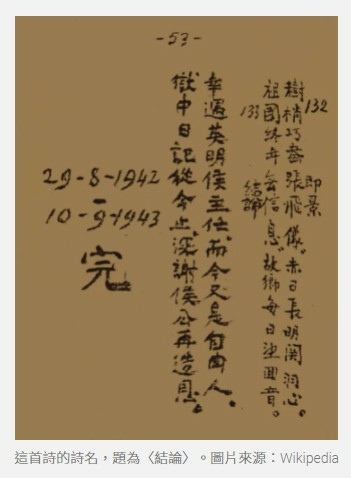 -53-
132
即景
樹梢巧畫張飛像。赤日長明関羽心。
祖國終年無信息。故鄉每日望回音。
133
結論
幸遇英明侯主任。而今又是自由人。
獄中日記從今止。深謝侯公再造恩。
29-8-1942
-
10-9-1943
完
這首詩的詩名，題為〈結論〉。圖片來源：Wikipedia